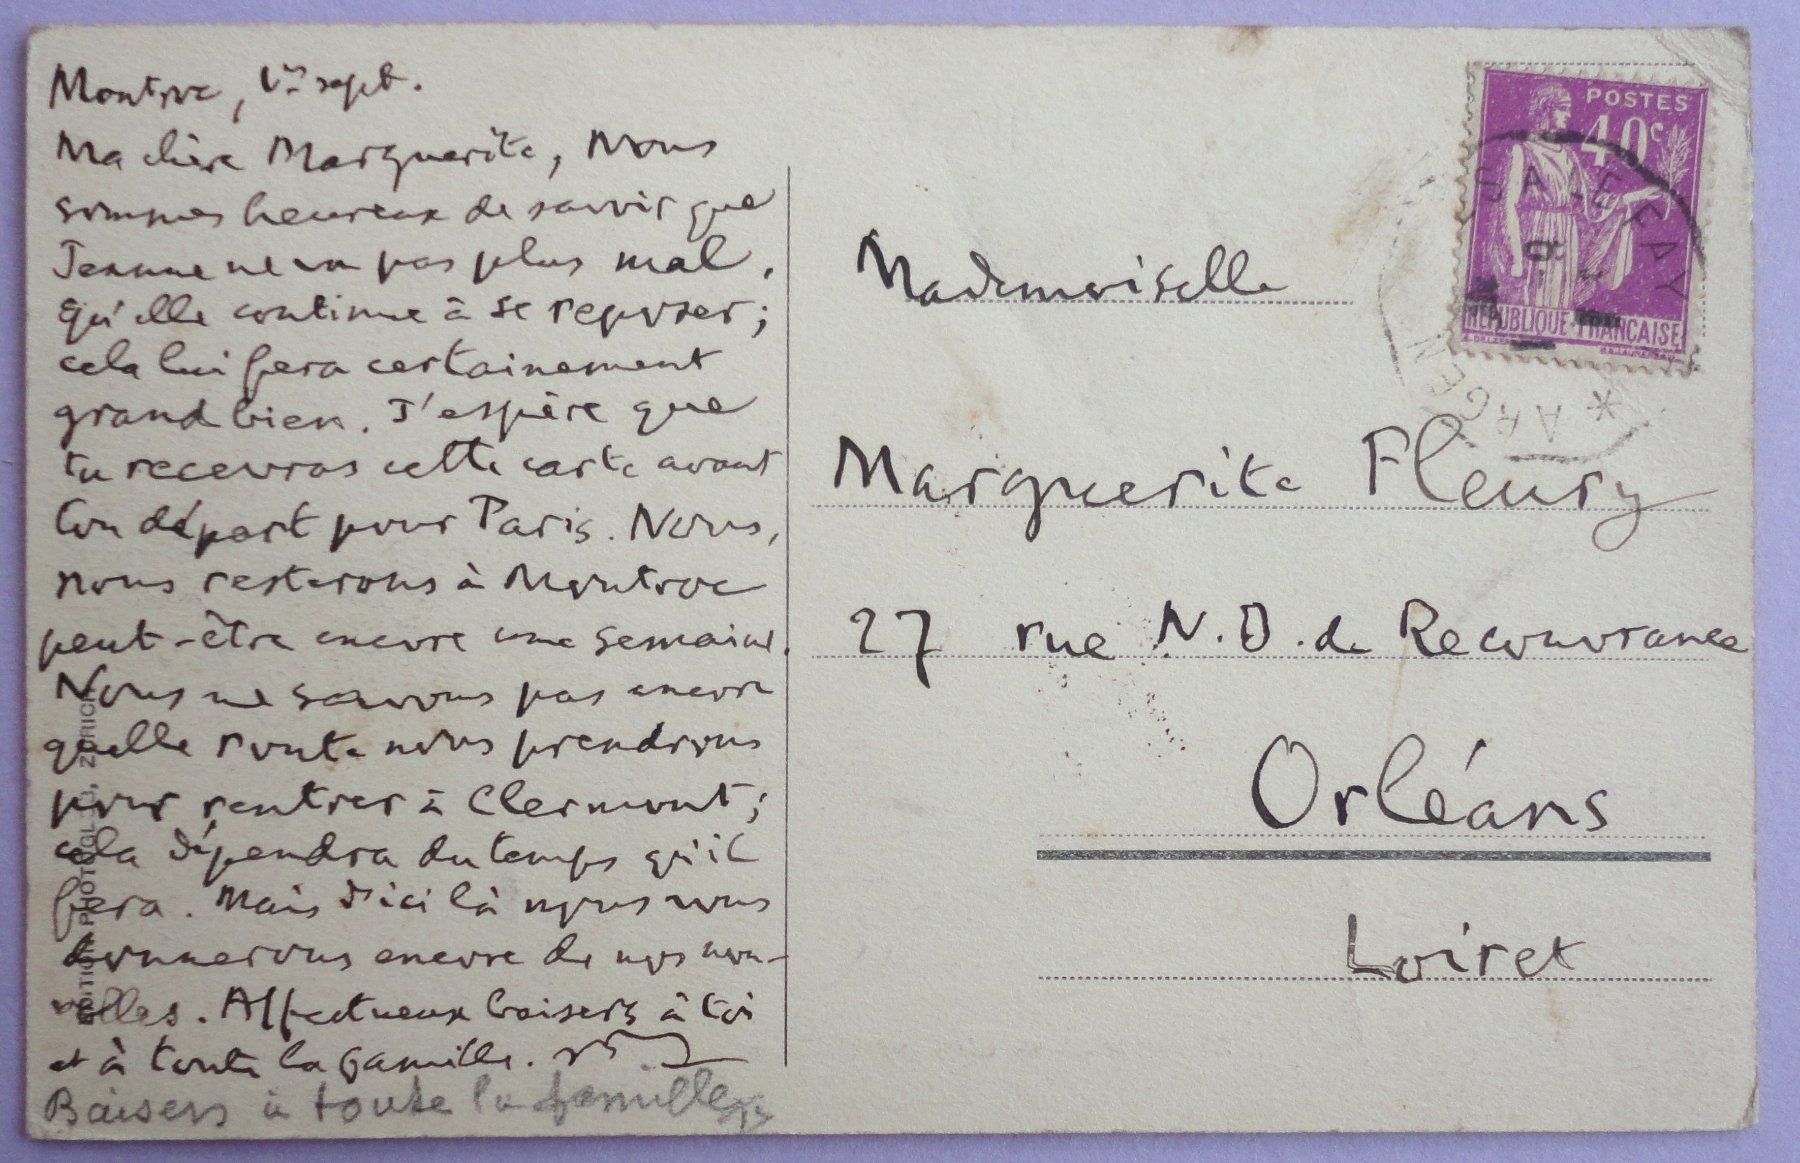 Montroc, 1er sept.
Ma chère Marguerite, Nous
sommes heureux de savoir que
Jeanne ne va pas plus mal,
qu'elle continue à se reposer;
cela lui fera certainement
grand bien. J'espère que
tu recevras cette carte avant
ton départ pour Paris. Nous,
nous resterons à Montroc
peut-être encore une semaine.
Nous ne savons pas encore
quelle route nous prendrons
pour rentrer à Clermont;
cela dépendra du temps qu'il
fera. Mais d'ici là nous vous
donnerons encore de nos nou-
velles. Affectueux baisers à toi
et à toute la famille.
Baisers à toute la famille
EDITION PHOTOGLOB, ZURICH
POSTES
40c
REPUBLIQUE FRANÇAISE
Mademoiselle
Marguerite Fleury
27 rue N.D. de Recouvrance
Orléans
Loiret